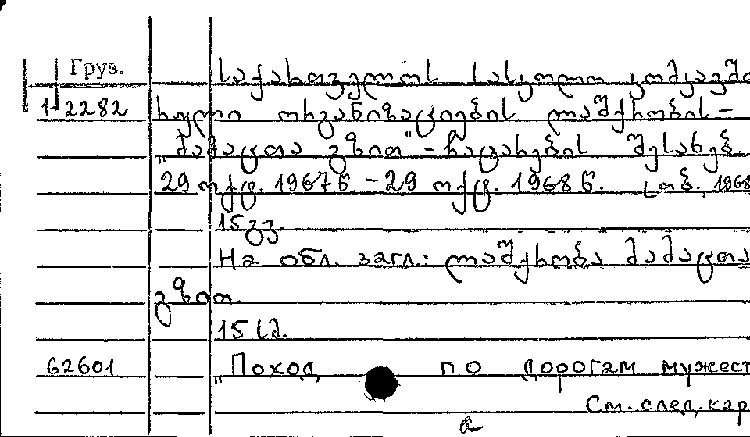 Груз. საქართველოს სახელო კომკავში
1-2282 რული ორგანიზაციების ლაშქრობის –
„მამაცთა გზით" – ჩატარების შესახებ.
29 ოქტ. 1967 წ – 29 ოქტ. 1968 წ. თბ., 1968
15 გვ.
На обл. загл.: ლაშქრობა მამაცთა
გზით.
15 სმ.
62601 „Поход по дорогам мужест
См. след. кар